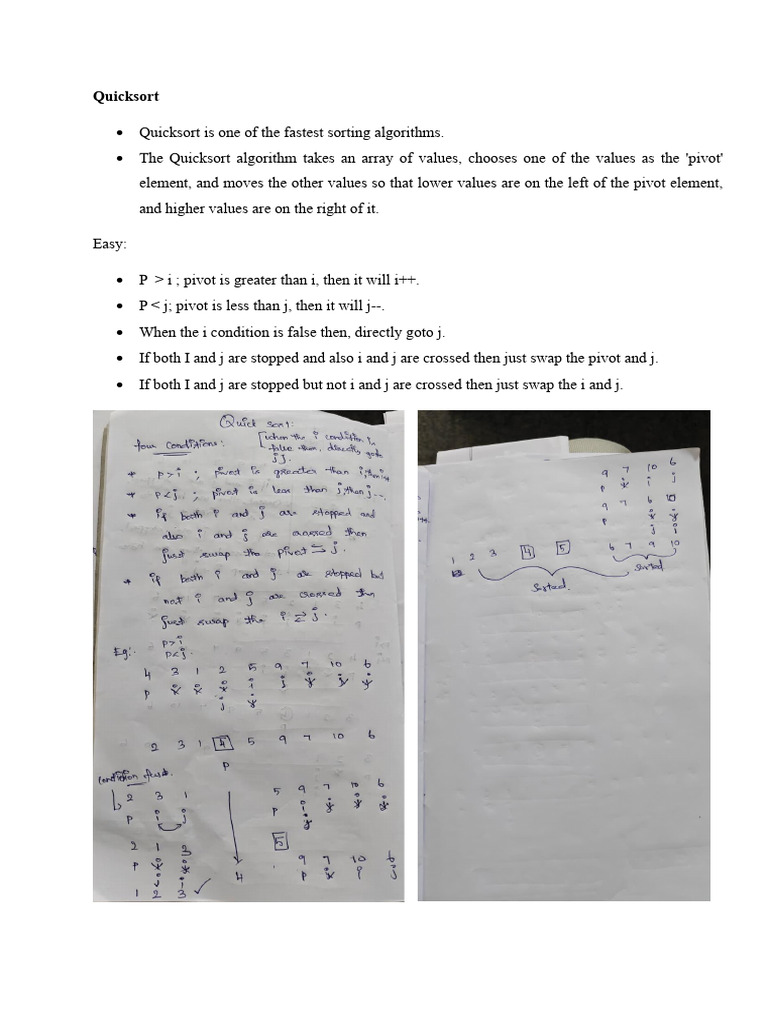 Quicksort
• Quicksort is one of the fastest sorting algorithms.
• The Quicksort algorithm takes an array of values, chooses one of the values as the 'pivot'
element, and moves the other values so that lower values are on the left of the pivot element,
and higher values are on the right of it.
Easy:
• P > i ; pivot is greater than i, then it will i++.
• P < j; pivot is less than j, then it will j--.
• When the i condition is false then, directly goto j.
• If both I and j are stopped and also i and j are crossed then just swap the pivot and j.
• If both I and j are stopped but not i and j are crossed then just swap the i and j.
Quick sort:
four conditions:
[when the i condition is
false then, directly goto
j].
* P>i ; pivot is greater than i, then i++
* P<j ; pivot is less than j, then j--.
* if both i and j are stopped and
also i and j are crossed then
just swap the pivot ⇆ j.
* if both i and j are stopped but
not i and j are crossed then
just swap the i ⇄ j.
P>i
Eg:- P<j.
4 3 1 2 5 9 7 10 6
P i i i i j j j j
j j
2 3 1 4 5 9 7 10 6
P
condition
2 3 1 5 9 7 10 6
P i j P i j j j
j
2 1 3 5
P i j
9 7 10 6
1 2 3 ✓ 4 P i i j
9 7 10 6
P i i j
9 7 6 10
P i j
j i
1 2 3 4 5 6 7 9 10
sorted
sorted.